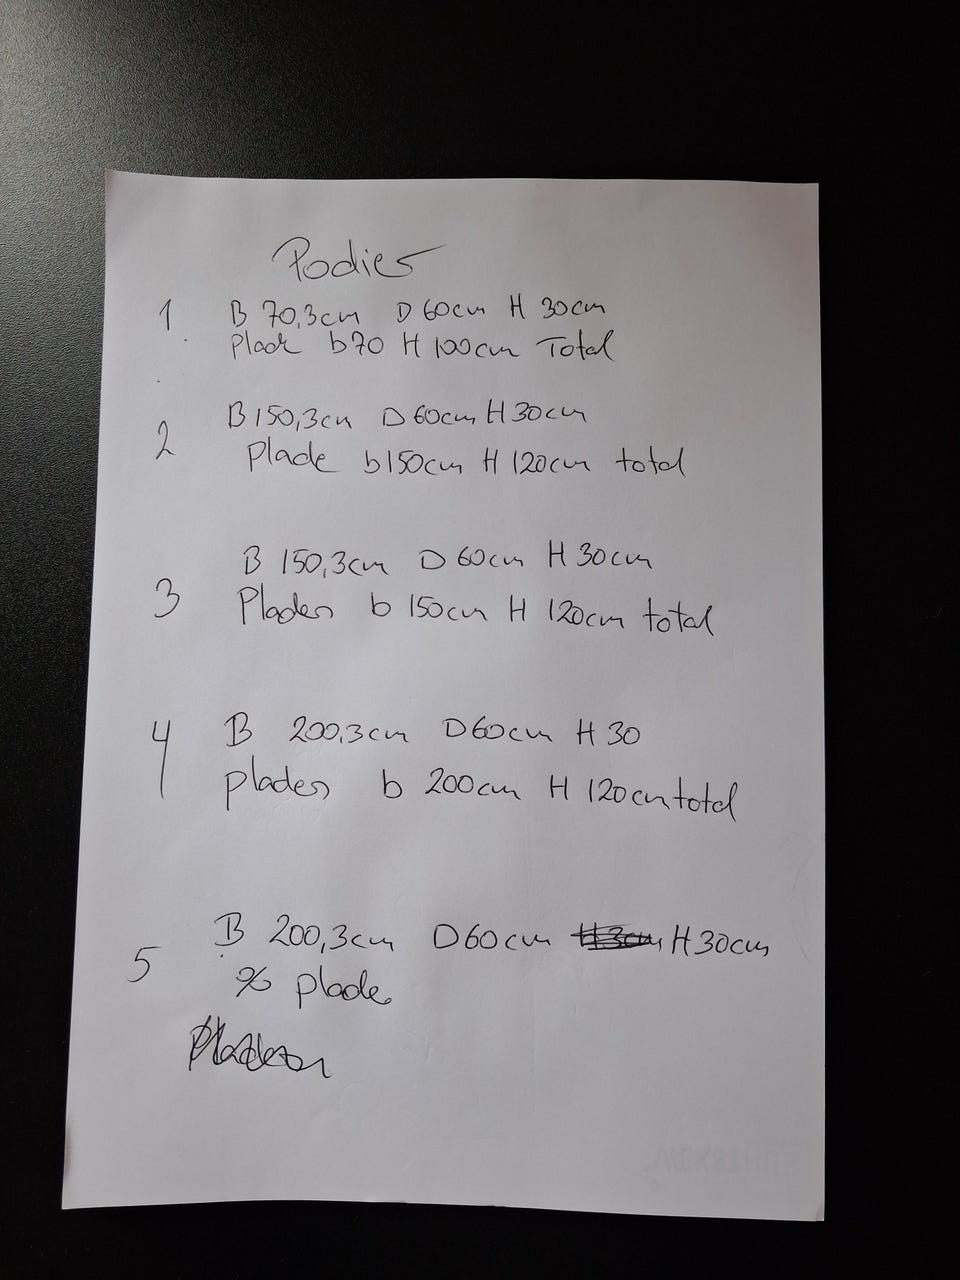 Podier
1 B 70,3cm D 60cm H 30cm
Plade b70 H 100cm Total
2 B 150,3cm D 60cm H 30cm
Plade b150cm H 120cm total
3 B 150,3cm D 60cm H 30cm
Pladen b 150cm H 120cm total
4 B 200,3cm D60cm H 30
pladen b 200cm H 120cm total
5 B 200,3cm D60cm H3cm H 30cm
% plade
Pladen